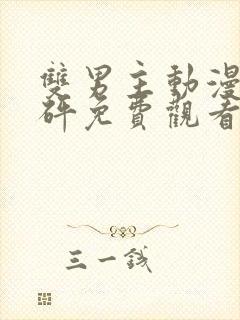 雙男主動漫
砰免費觀看
三一錢